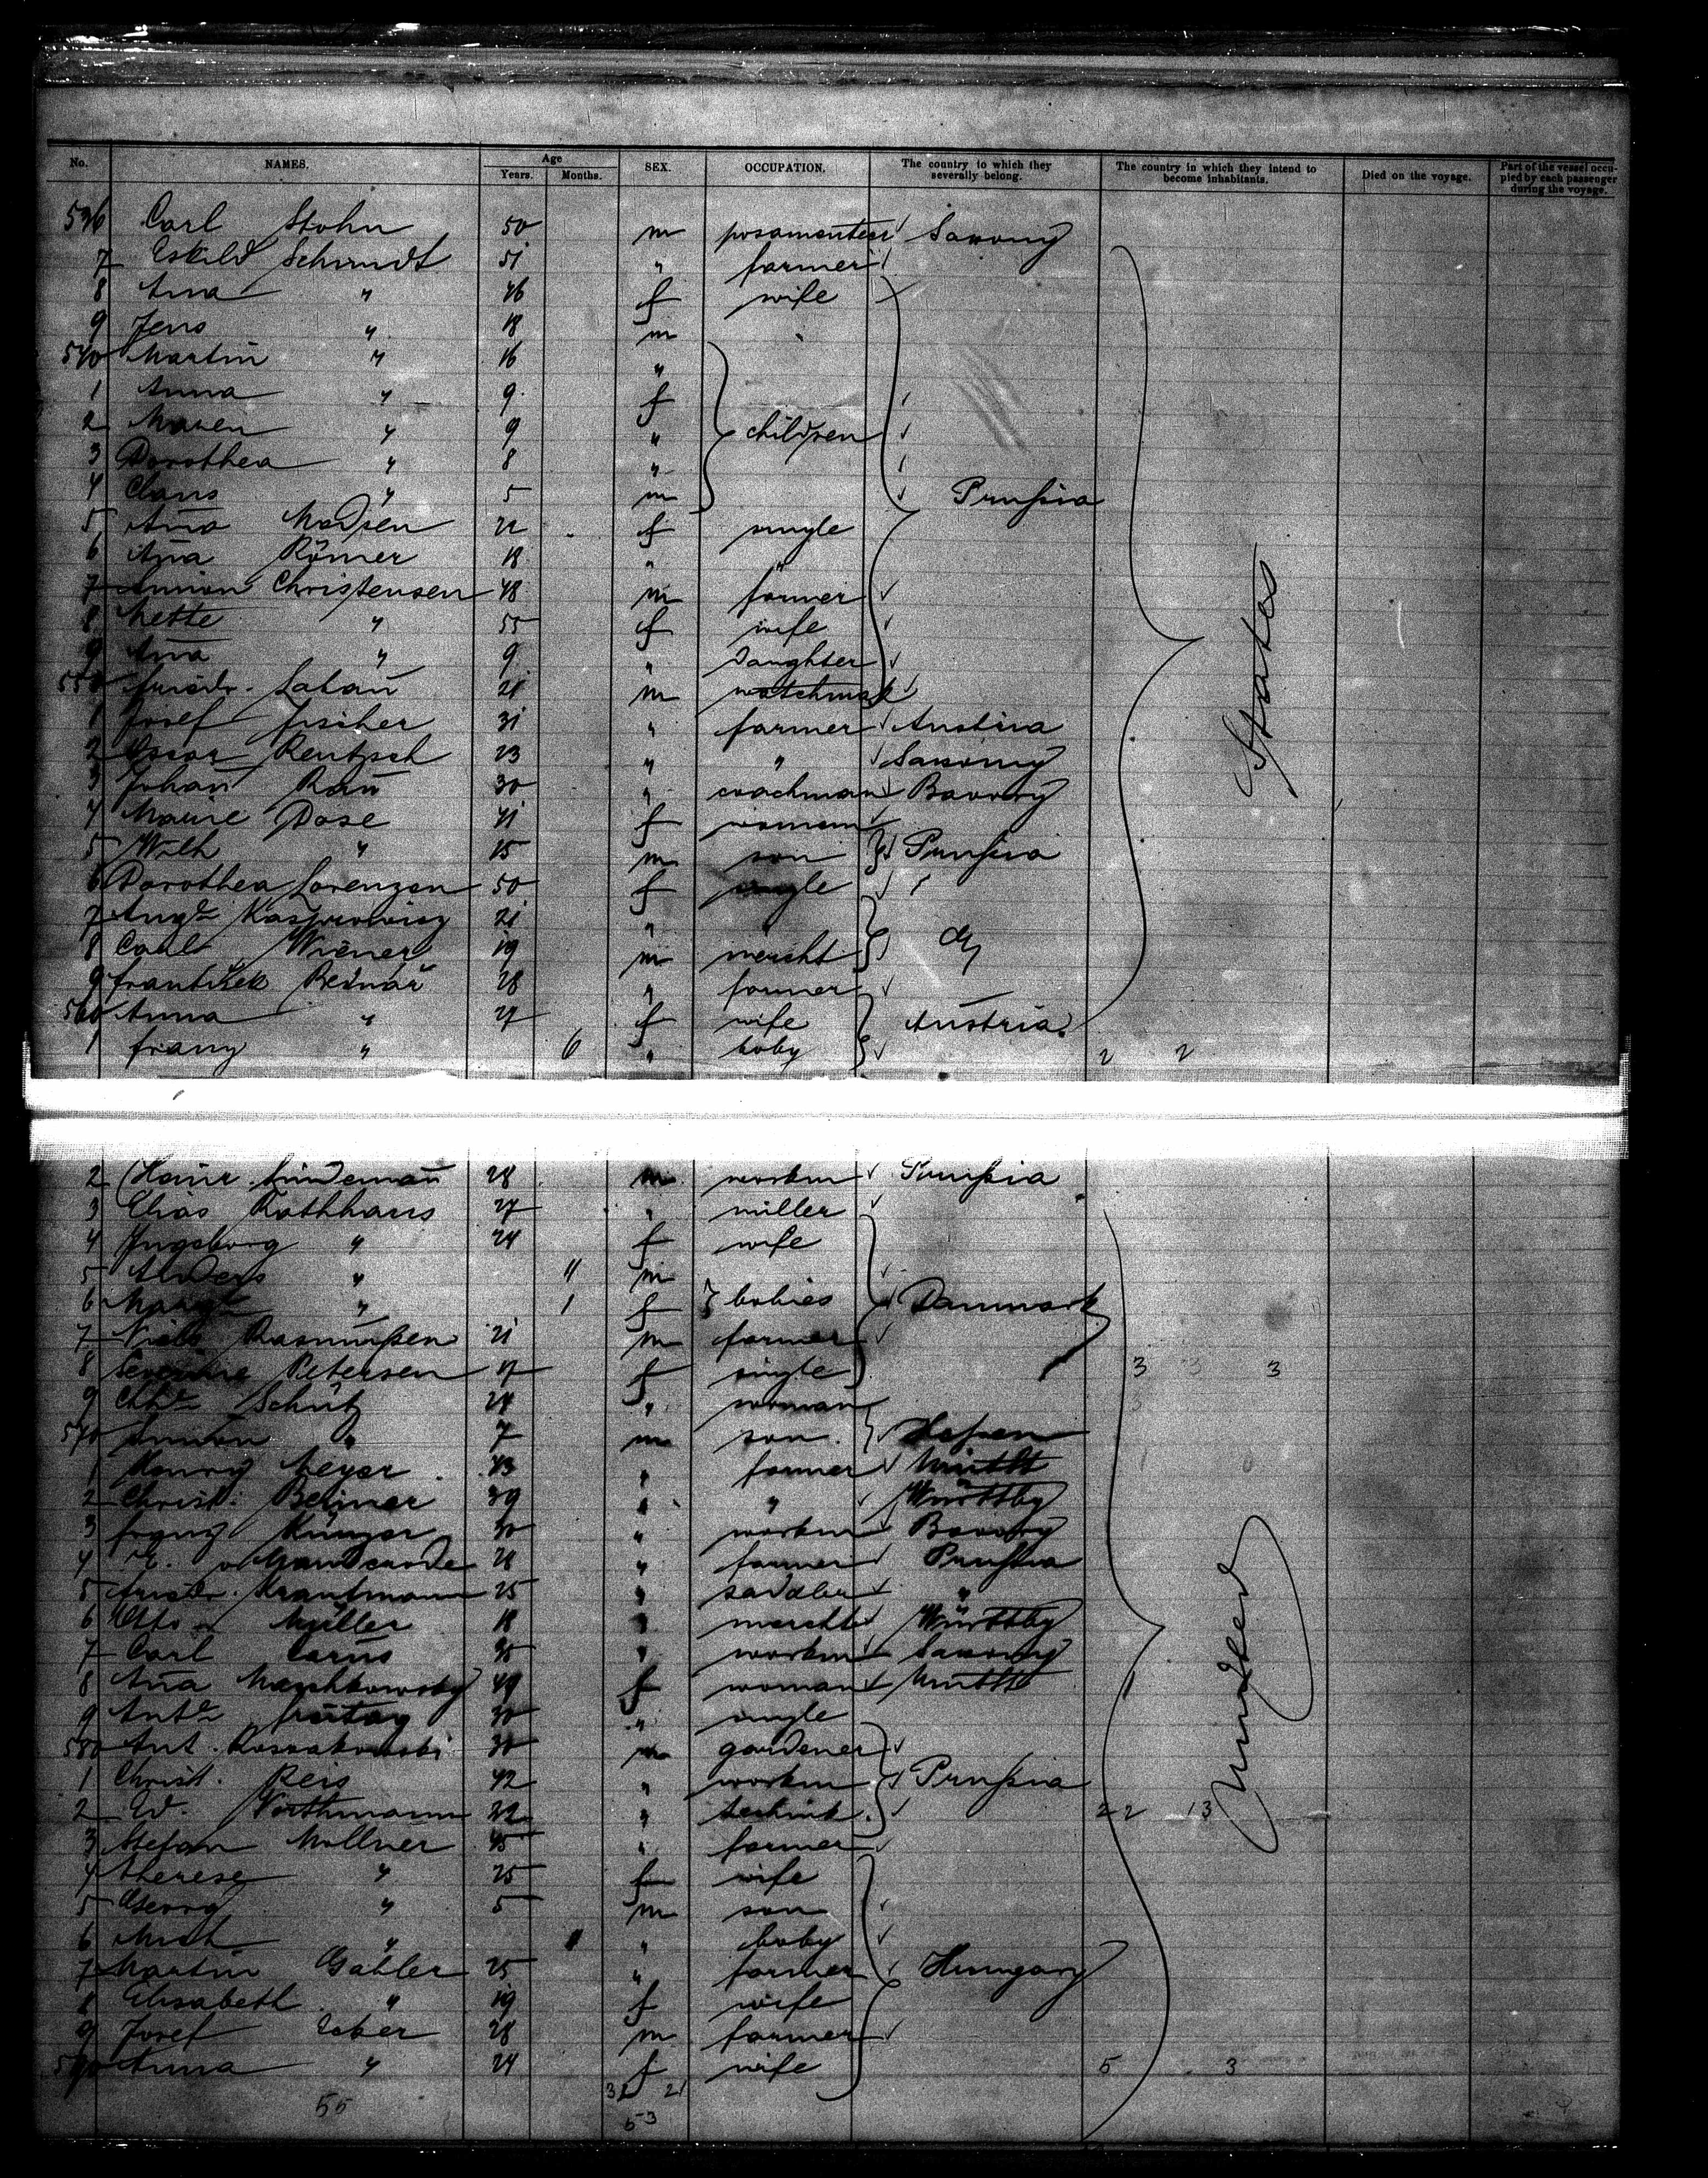 No. NAMES. Age Years. Months. SEX. OCCUPATION. The country to which they severally belong. The country in which they intend to become inhabitants. Died on the voyage. Part of the vessel occupied by each passenger during the voyage.
536 Carl Stohn 50 m posamentier Saxony
7 Eskild Schmidt 51 " farmer
8 Ana " 46 f wife
9 Jens " 18 m "
540 Martin " 16 "
1 Anna " 9 f
2 Maren " 9 " children
3 Dorothea " 8 "
4 Claus " 5 m Prussia
5 Ana Madsen 22 f single
6 Ana Römer 18 " "
7 Christensen 48 m farmer
8 Mette " 55 f wife
9 Ana " 9 " daughter
550 Friedr. Laban 21 m watchmak
1 Josef Fischer 31 " farmer Austria
2 Oscar Rentzsch 23 " " Saxony
3 Johan Rau 30 " coachman Bavary
4 Marie Dose 41 f woman
5 Wilh " 15 m son Prussia
6 Dorothea Lorenzen 50 f single "
7 Augte 21 "
8 Carl Wiener 19 m mercht
9 Frantisek Bednar 28 " farmer
560 Anna " 27 f wife Austria.
1 Franz " 6 " baby 2 2
States
2 Heinr. Lindeman 28 m workm Prussia
3 Elias Rathhaus 27 " miller
4 Ingeborg " 24 f wife
5 Anders " 11 m
6 " 1 f babies Danmark
7 Niels Rasmussen 21 m farmer
8 Severine Petersen 17 f single 3 3 3
9 Schütz 24 " woman
570 " 7 m son Hessen
1 Henry Meyer 43 " farmer
2 Christ. Beiner 39 " " Württbg
3 Franz Künzer 30 " workm Bavary
4 E. v 21 " farmer Prussia
5 Friedr. Krautmann 25 " saddler "
6 Otto Müller 18 " mercht Württbg
7 Carl Carus 35 " workm Saxony
8 Ana 49 f woman
9 Ante Freitag 30 " single
580 Ant. Kossakowski 30 m gardener
1 Christ. Reis 42 " workm Prussia
2 W. Northmann 22 " technik. 22 13
3 Stefan Mollner 45 " farmer
4 Therese " 25 f wife
5 Georg " 5 m son
6 " " baby
7 Martin Gabler 25 " farmer Hungary
8 Elisabeth " 19 f wife
9 Josef 28 m farmer
590 Anna " 24 f wife 5 3
United
32 21
55 53